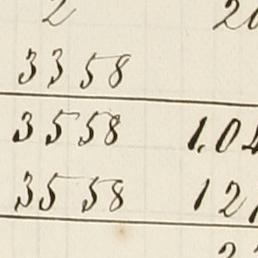 2 20
3358
3558 1.04
3558 12
2